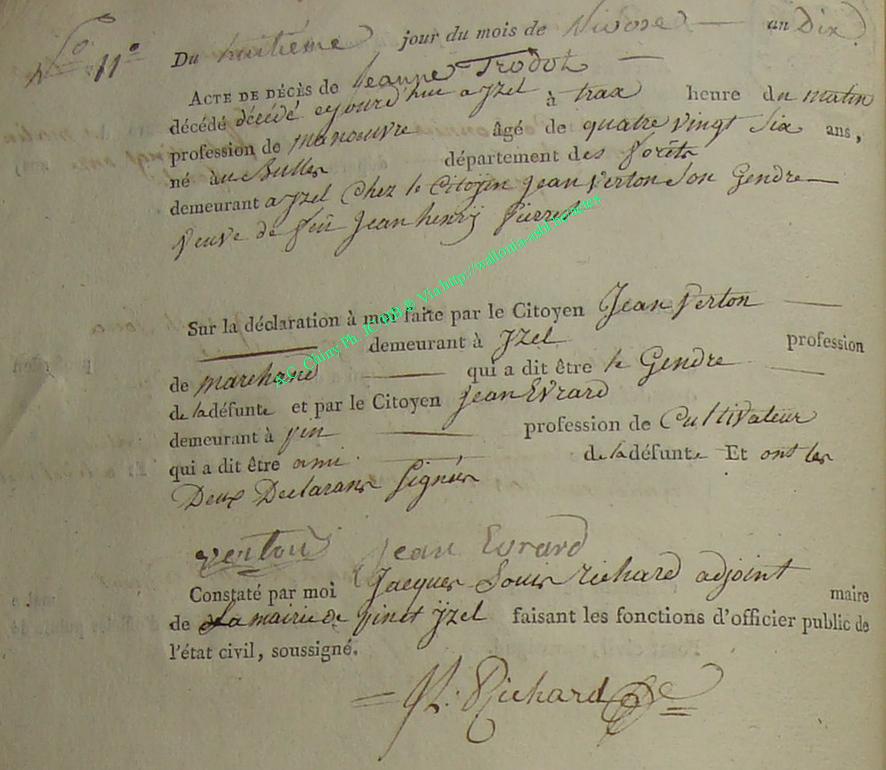 No. 11°
Du huitième jour du mois de Nivose an Dix.
ACTE DE DÉCÈS de Jeanne Trodot
décédé décédé cejourd'hui a Yzel à trax heure du matin
profession de manoeuvre âgé de quatre vingt Six ans,
né à Bulles département des forêts
demeurant a Yzel Chez le Citoyen Jean Verton Son Gendre
Veuve de feu Jean henry Pierret
Sur la déclaration à moi faite par le Citoyen Jean Verton
demeurant à Yzel profession
de marchand qui a dit être le Gendre
de la défunte et par le Citoyen jean Evrard
demeurant à pin profession de Cultivateur
qui a dit être ami de la défunte Et ont les
Deux Declarans Signés
verton Jean Evrard
Constaté par moi Jacques Louis Richard adjoint maire
de La mairie de pin et yzel faisant les fonctions d'officier public de
l'état civil, soussigné.
JL. Richard
S.G. Chiny Ph. © Via http://wallonia-asbl.